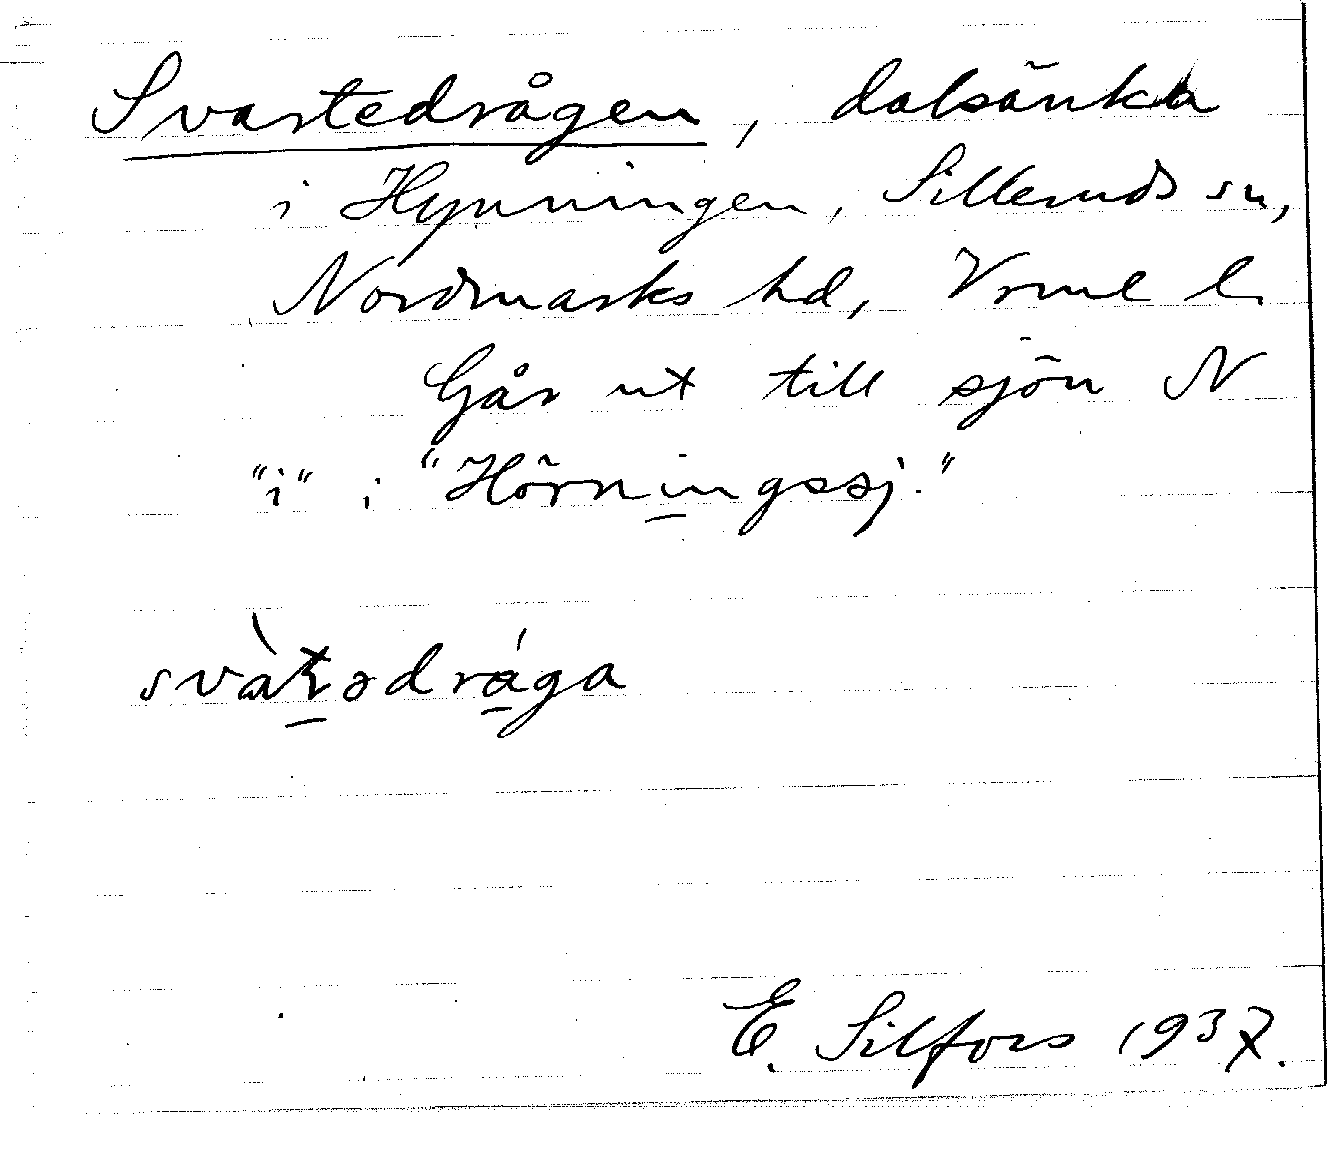 Svartedrågen, dalsänka
i Hynningen, Silleruds sn,
Nordmarks hd, Vrml l.
Går ut till sjön N
"i" i "Hörningssj."
svàʈədrága
E. Silfors 1937.